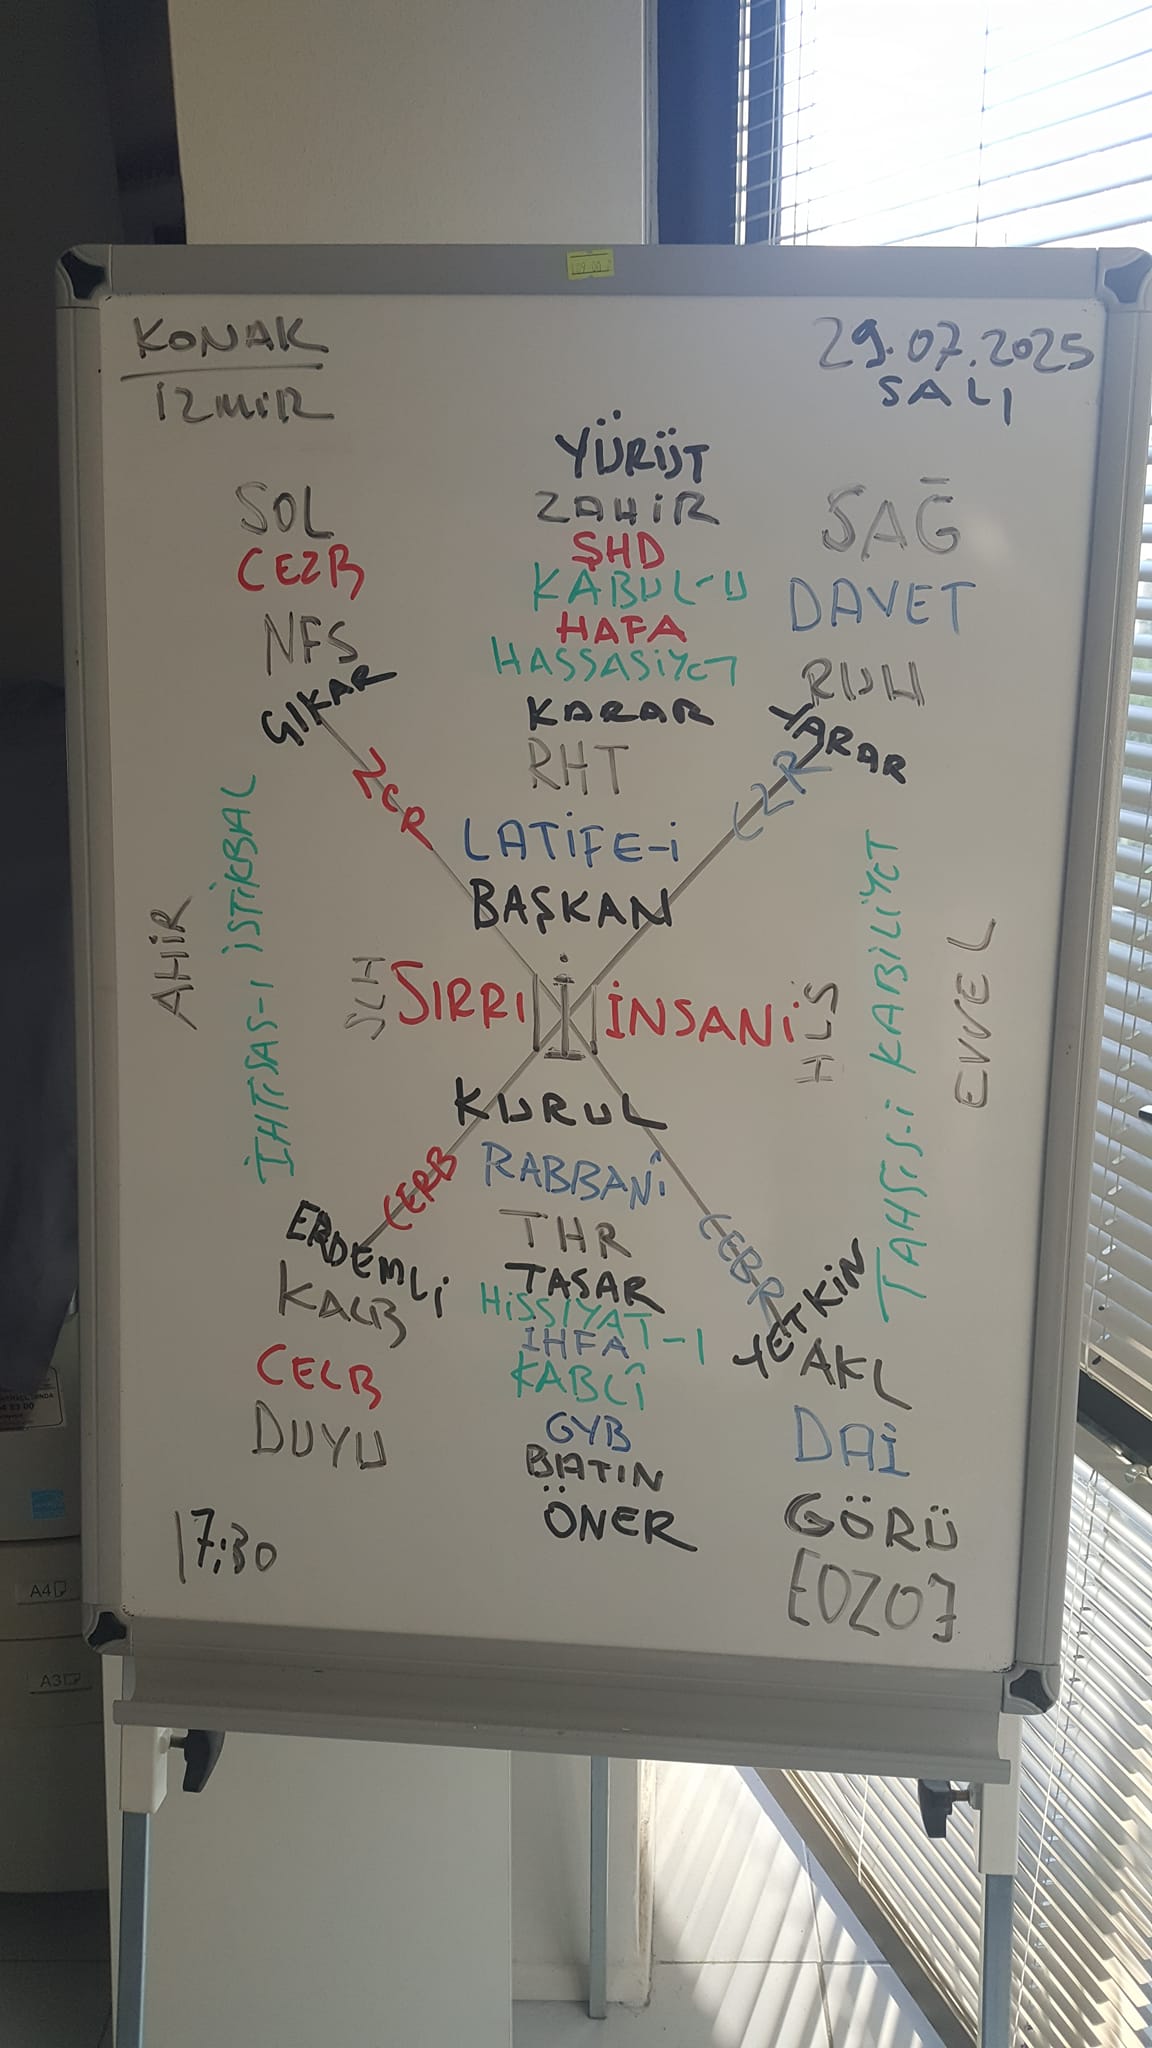 KONAK
İZMİR
29.07.2025
SALI
YÜRÜT
ZAHİR
ŞHD
KABUL-U
HAFA
HASSASİYET
KARAR
RHT
LATİFE-İ
BAŞKAN
SOL
CEZB
NFS
ÇIKAR
ZCR
SAĞ
DAVET
RUH
YARAR
CZR
AHİR
İHTİSAS-I İSTİKBAL
SLH
SIRRI
İ
İNSANİ
HLS
TAHSİS-İ KABİLİYET
EVVEL
KURUL
RABBANÎ
THR
TASAR
HİSSİYAT-I
İHFA
KABLÎ
GYB
BATIN
ÖNER
CERB
ERDEMLİ
KALB
CELB
DUYU
CEBR
YETKİN
AKL
DAİ
GÖRÜ
[OZO]
17:30
A4
A3